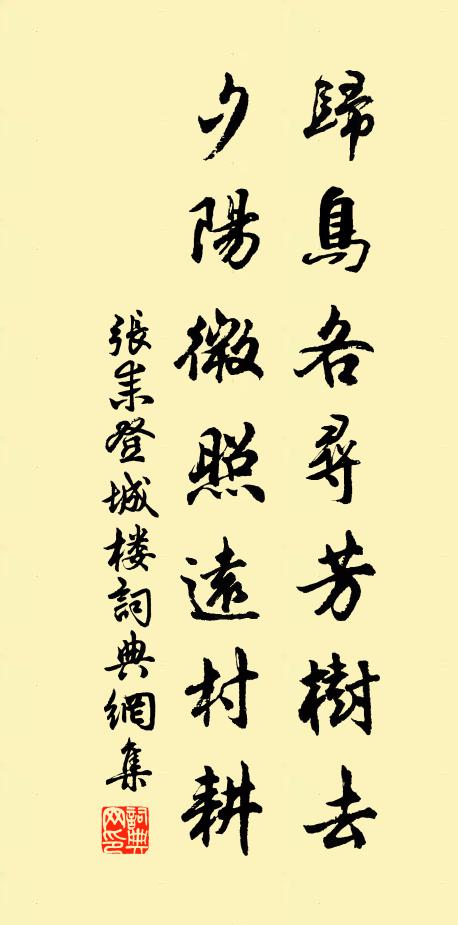 歸鳥各尋芳樹去
夕陽微照遠村耕
張耒登城楼詞典網集
詞典网印